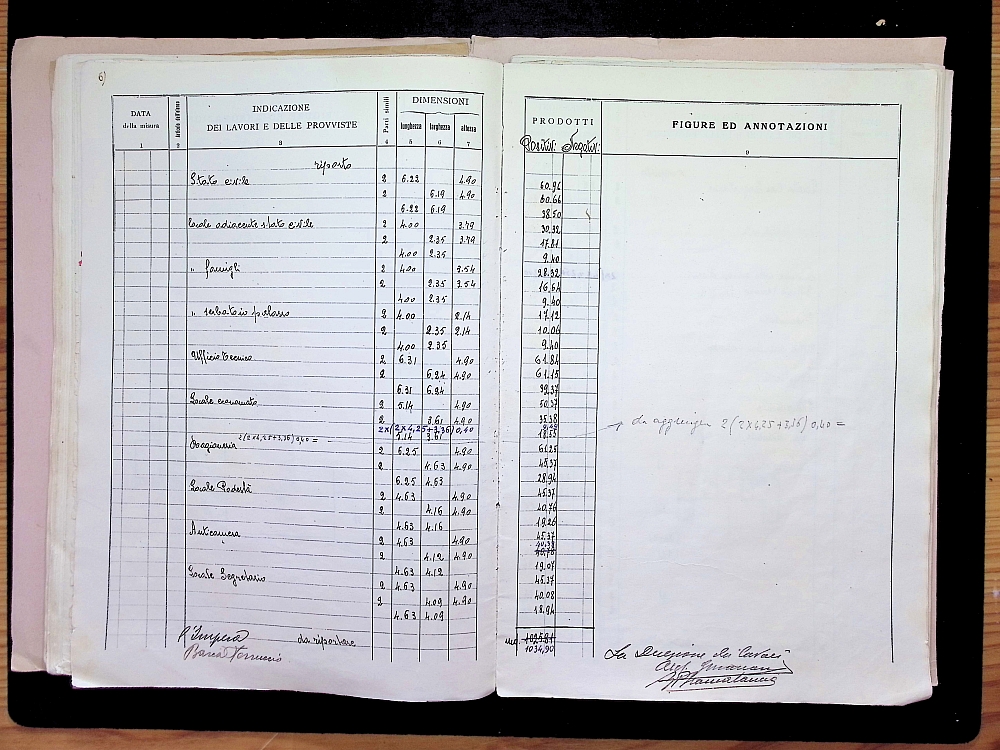 6)
DATA della misura
INDICAZIONE DEI LAVORI E DELLE PROVVISTE
Parti simili
DIMENSIONI
lunghezza larghezza altezza
1 2 3 4 5 6 7
riporto
Stato civile 2 6.22 4.90
2 6.19 4.90
6.22 6.19
Locale adiacente stato civile 2 4.00 3.79
2 2.35 3.79
4.00 2.35
" famigli 2 4.00 3.54
2 2.35 3.54
4.00 2.35
" serbatoio palazzo 2 4.00 2.14
2 2.35 2.14
4.00 2.35
Ufficio tecnico 2 6.31 4.90
2 6.24 4.90
6.31 6.24
Locale economato 2 5.14 4.90
2 3.61 4.90
2x(2x4,25+3,36)0,40
5.14 3.61
2(2x4,25+3,36)0,40=
Ragioneria 2 6.25 4.90
2 4.63 4.90
6.25 4.63
Locale Podestà 2 4.63 4.90
2 4.16 4.90
4.63 4.16
Anticamera 2 4.63 4.90
2 4.12 4.90
4.63 4.12
Locale Segretario 2 4.63 4.90
2 4.09 4.90
4.63 4.09
l'Impresa da riportare
Barca Ferruccio
PRODOTTI
Positivi: Negativi:
FIGURE ED ANNOTAZIONI
9
60.96
60.66
38.50
30.32
17.81
9.40
28.32
16.64
9.40
17.12
10.06
9.40
61.84
61.15
39.37
50.37
35.38
18.55
da aggiungere 2(2x4,25+3,36)0,40=
61.25
45.37
28.94
45.37
40.76
19.26
45.37
40.38
19.07
45.37
40.08
18.94
1025.81
1034,90
La Direzione dei Lavori